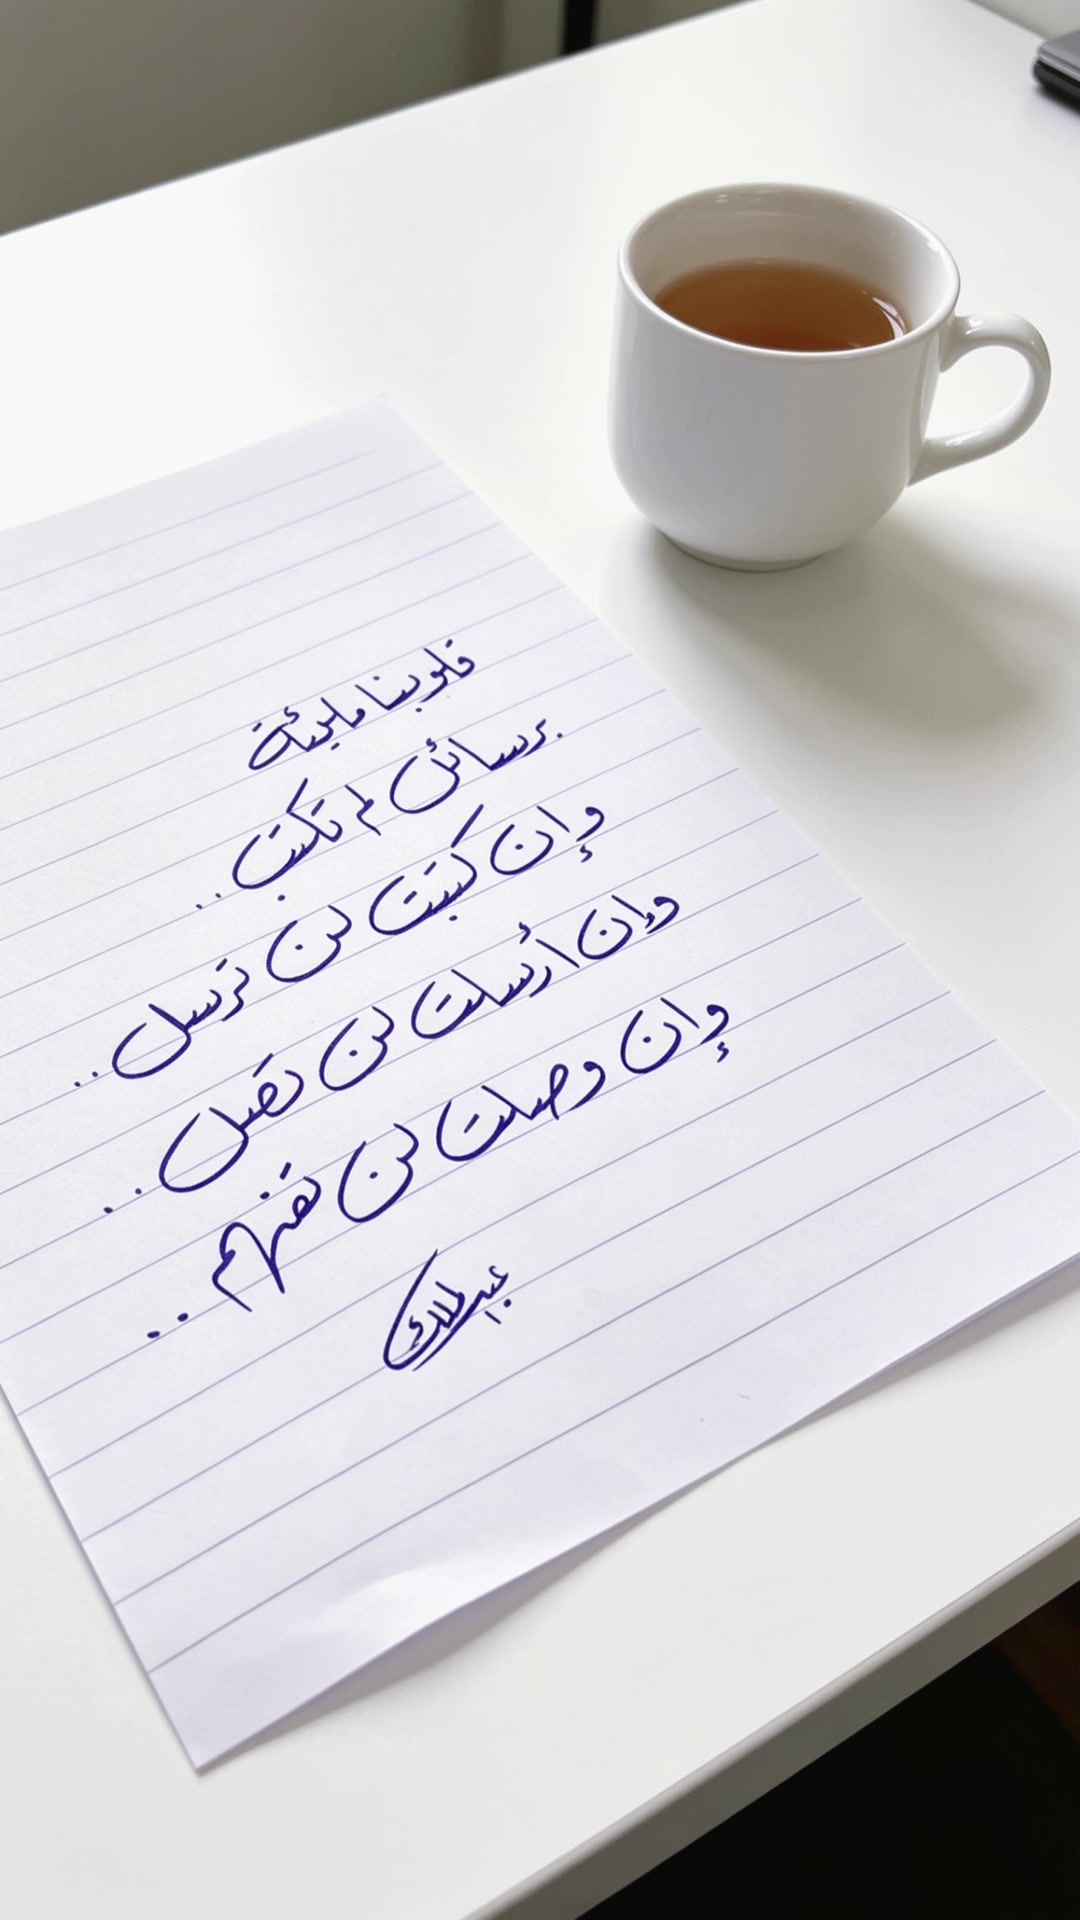 قلوبنا مليئة
برسائل لم تكتب..
وإن كتبت لن ترسل..
وإن أرسلت لن تصل..
وإن وصلت لن تفهم..
عبدالملك